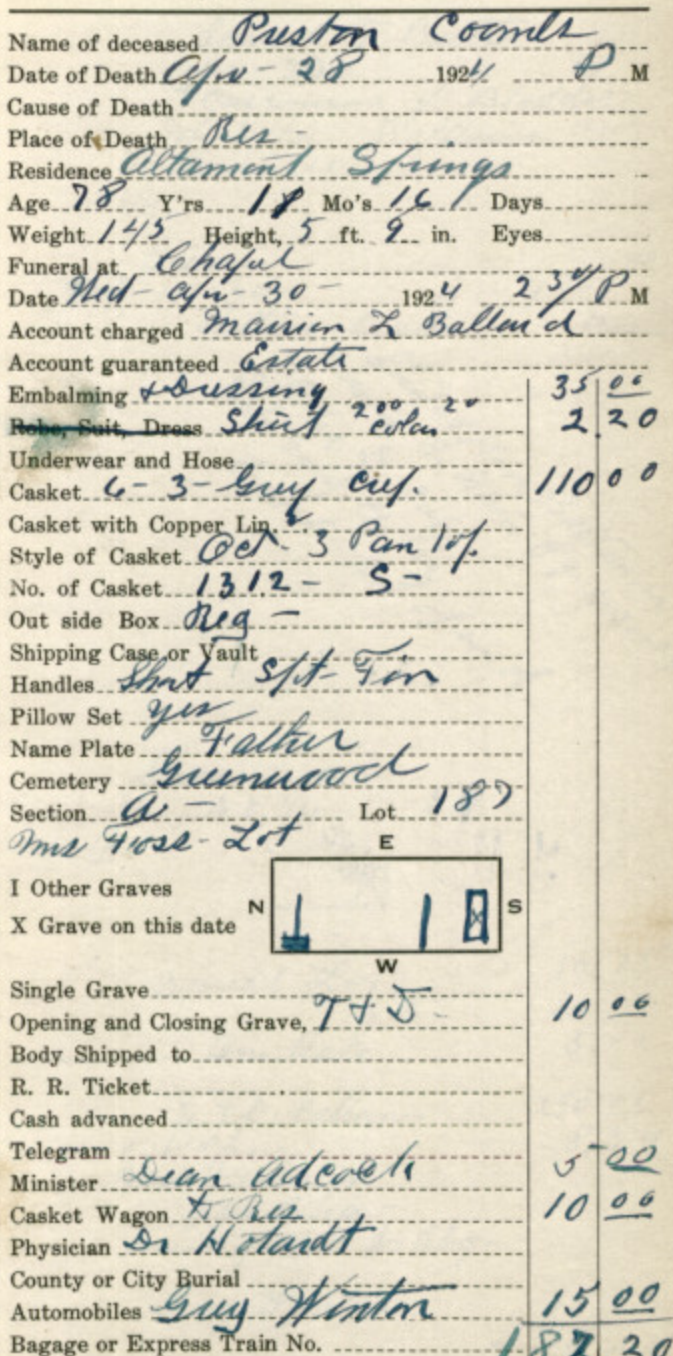 Name of deceased Preston Coombs
Date of Death Apr - 28 1924 P M
Cause of Death
Place of Death Res -
Residence Altamont Springs
Age 78 Y'rs Mo's 16 Days
Weight 145 Height, 5 ft. 9 in. Eyes
Funeral at Chapel
Date Wed - Apr - 30 - 1924 2 30/ P M
Account charged Marrion L Ballard
Account guaranteed Estate
Embalming + Dressing 35 00
Robe, Suit, Dress Shirt 2 00 Colar 20 2.20
Underwear and Hose
Casket 6 - 3 - Grey Crep. 110 00
Casket with Copper Lin.
Style of Casket Oct - 3 Pan Top.
No. of Casket 1312 - S -
Out side Box Reg -
Shipping Case or Vault
Handles Short
Pillow Set Yes
Name Plate Father
Cemetery Greenwood
Section A - Lot 187
Mrs Foss - Lot
E
I Other Graves
N S
X Grave on this date
W
Single Grave
Opening and Closing Grave, T + D - 10 00
Body Shipped to
R. R. Ticket
Cash advanced
Telegram
Minister Dean Adcock 5 00
Casket Wagon to Res 10 00
Physician Dr
County or City Burial
Automobiles Grey Winton 15 00
Bagage or Express Train No. 187 20